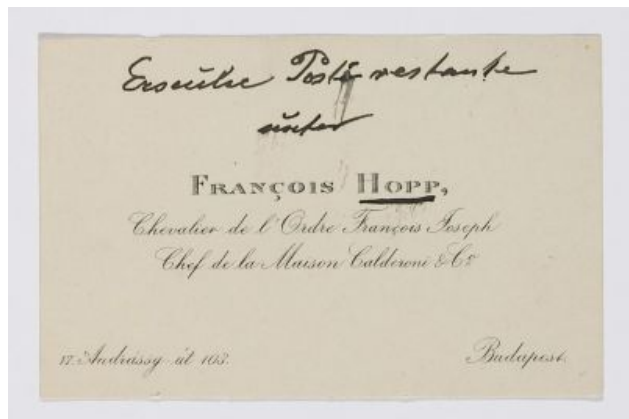 Ersuche Poste restante
unter
FRANÇOIS HOPP,
Chevalier de l'Ordre François Joseph
Chef de la Maison Calderoni & Cº
VI. Andrássy út 103.
Budapest.